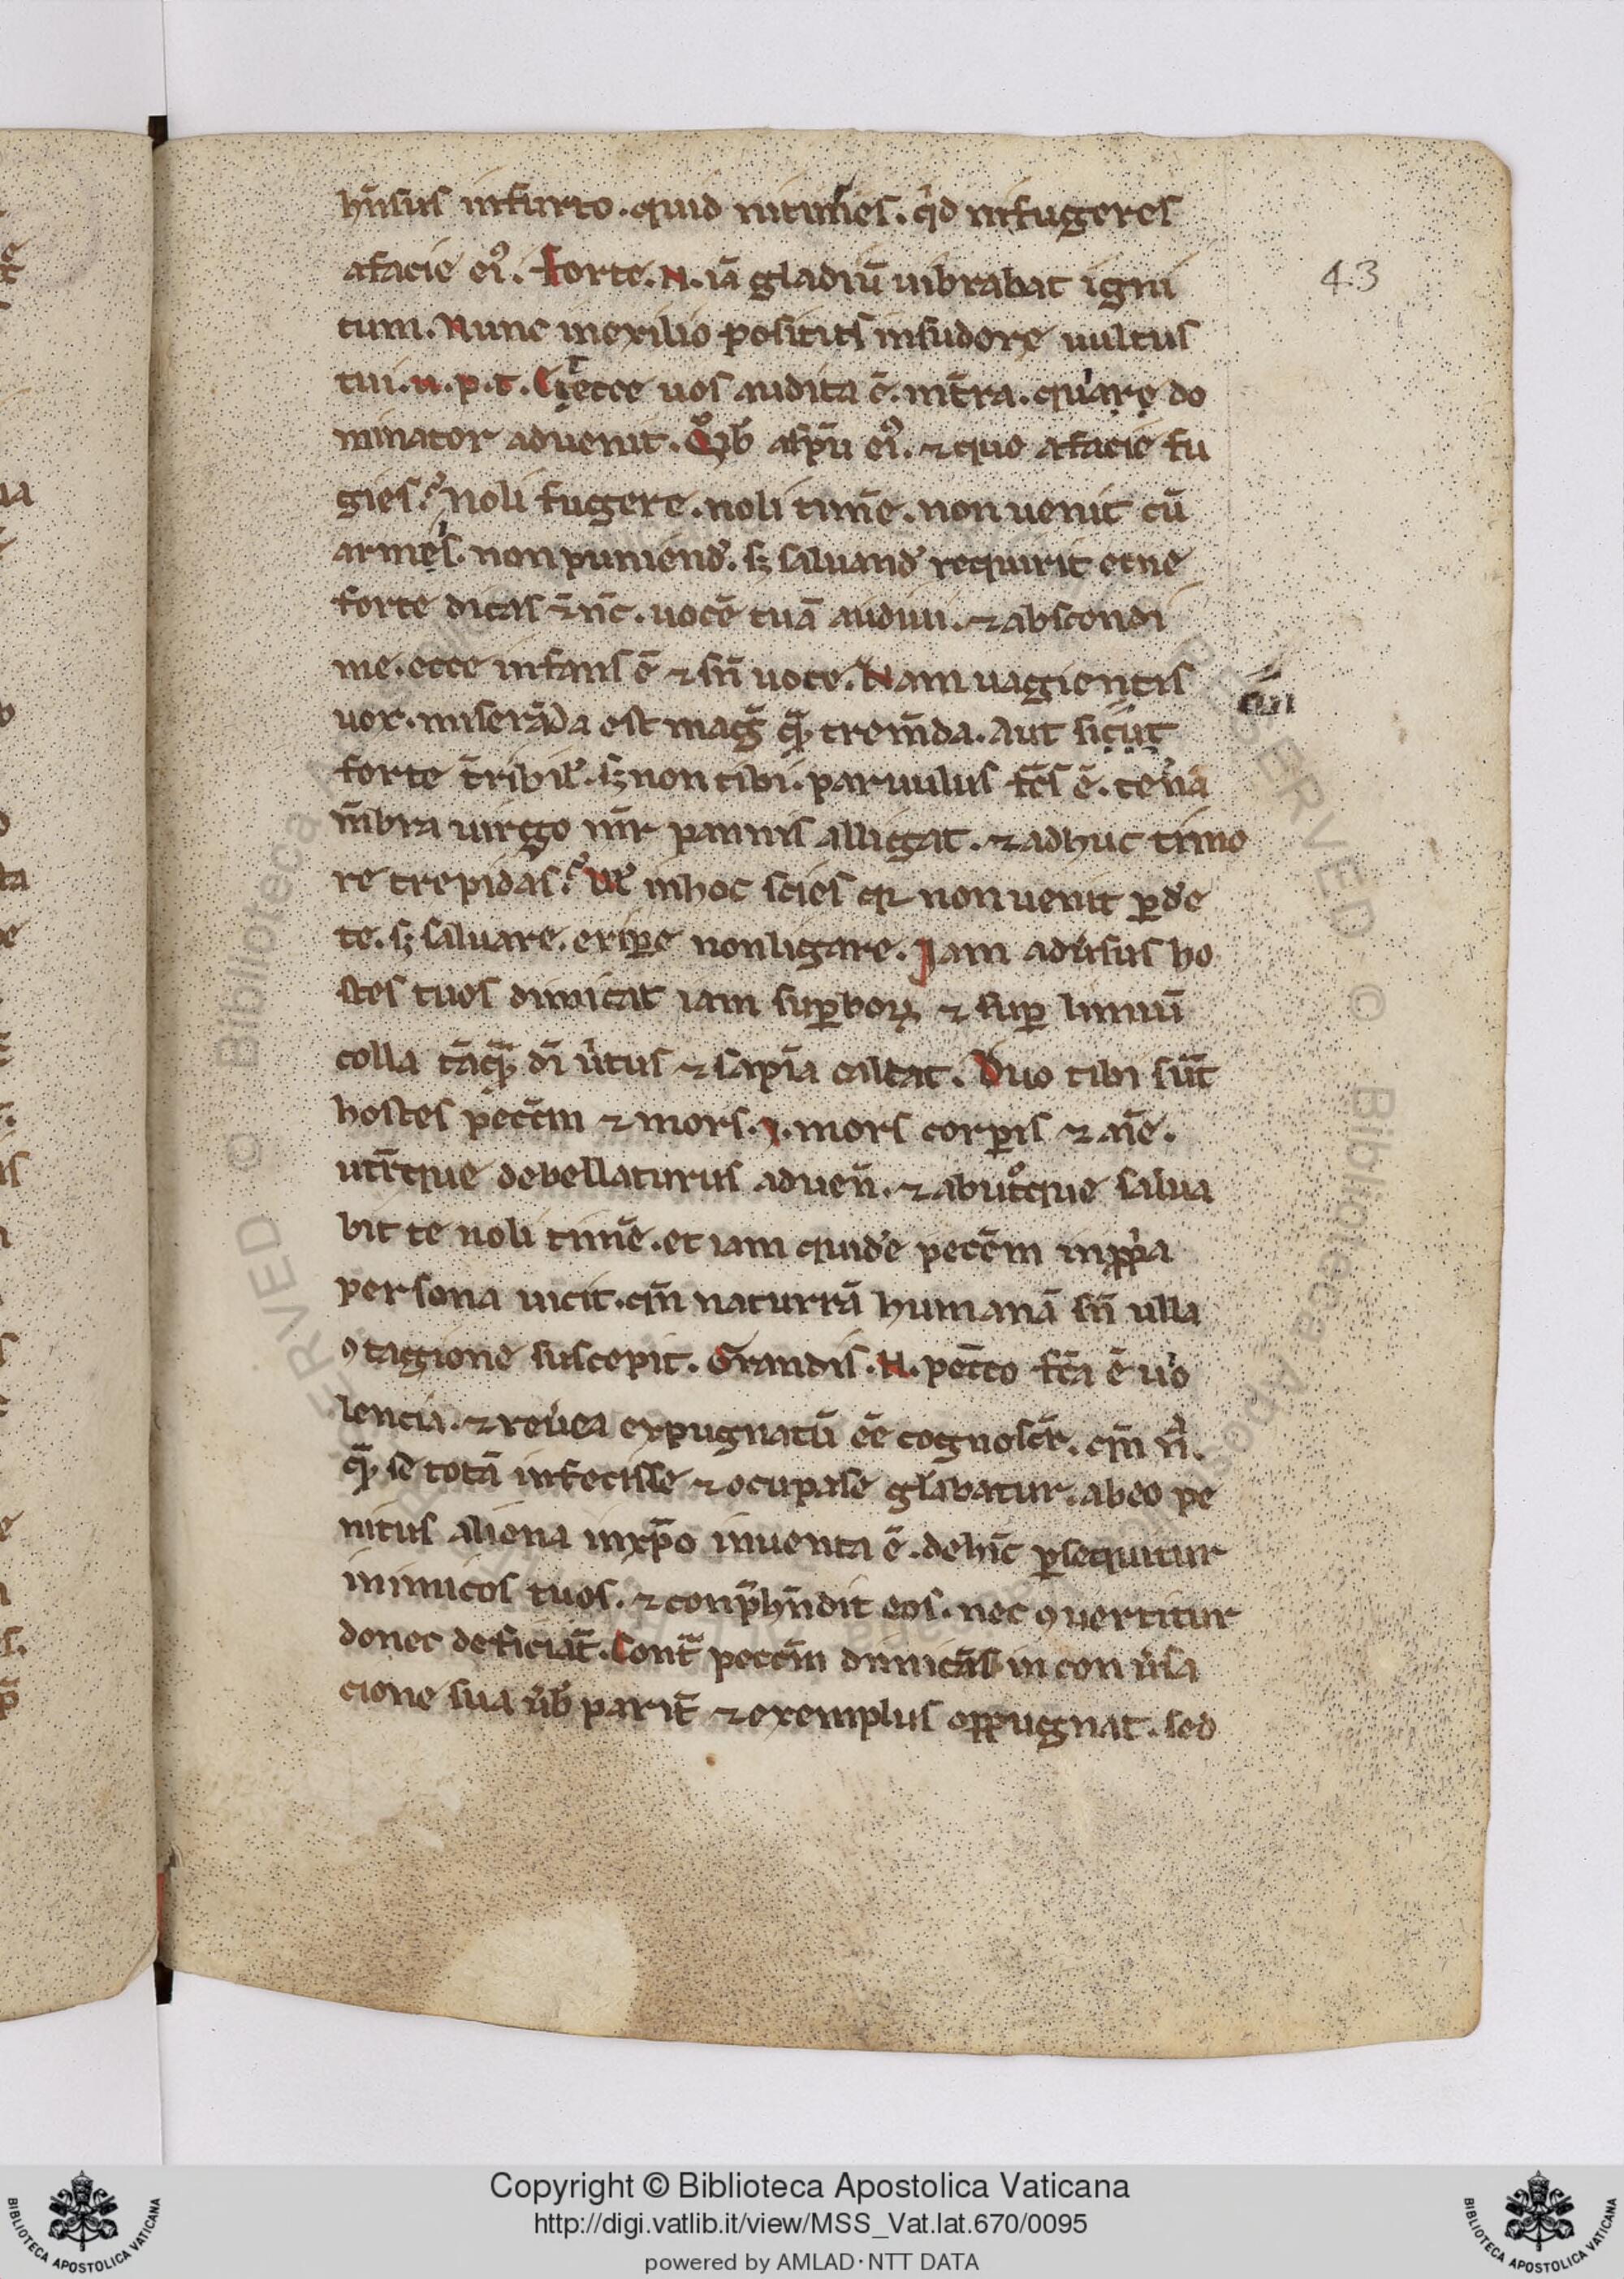 hr̄sus in furto. quid nitimes. qͥd nı̄ fugeres
a facie eiꝰ. Forte. N. iā gladiū uibrabat igni
tum. Nunc in exilio positus in sudore uultus
43
tui. u. p. t. Et ecce uos audita ē. in tr̄ra. quare do
minator aduenit. Qͦ ib̄ a sp̄u eiꝰ. ⁊ quo a facie fu
gies? noli fugere. noli tim̄e. non uenit cū
armes. non puniend̓. sꝫ saluand̓ requirit et ne
forte dicas ⁊ n̄c. uocē tuā audiui. ⁊ abscondi
me. ecce infans ē ⁊ sn̄ uoce. Nam uagientis
uox. miserāda est mag̃ qͣꝫ trem̄da. Aut sicut
forte t̄ribił. sꝫ non tibi. paruulus fc̄s ē. ten̓a
m̄bra uirgo m̄r pannis alligat. ⁊ adhuc timo
re trepidas? Uł in hoc scies qꝛ non uenit ꝑd̓e
te. sꝫ saluare. eriꝑe non ligare. Jam adūsus ho
stes tuos dimicat iam suꝑboꝝ ⁊ suꝑ limiū
colla tāqͣꝫ dī ūtus ⁊ sapīa calcat. Duo tibi sūt
hostes pecc̄m ⁊ mors. .i. mors corꝑis ⁊ aīe.
utrū̄que debellaturus aduen̄. ⁊ ab utͦque salua
bit te noli tim̄e. et iam quid̓e pecc̄m in ꝓp̓a
persona uicit. cu̅m naturrā humanā sn̄ ulla
ꝯtagione suscepit. Grandis. N. pecc̄o fc̄a ē uͥo
lencia. ⁊ reuera expugnatū ēē cognoscr̄. cu̅m nͣ.
qͣꝫ se totā infecisse ⁊ ocupase gl̄abatur. ab eo pe
nitus aliena in xp̄o inuenta ē. dehīc ꝑsequitur
inimicos tuos. ⁊ conp̄hn̄dit eos. nec ꝯuertitur
donec deficiāt. Contͣ pecc̄m dimicāt in con ūsa
cione sua ūb̄ parit̄ ⁊ exemplus oppugnat. sed
Copyright © Biblioteca Apostolica Vaticana
http://digi.vatlib.it/view/MSS_Vat.lat.670/0095
powered by AMLAD·NTT DATA
BIBLIOTECA APOSTOLICA VATICANA
BIBLIOTECA APOSTOLICA VATICANA